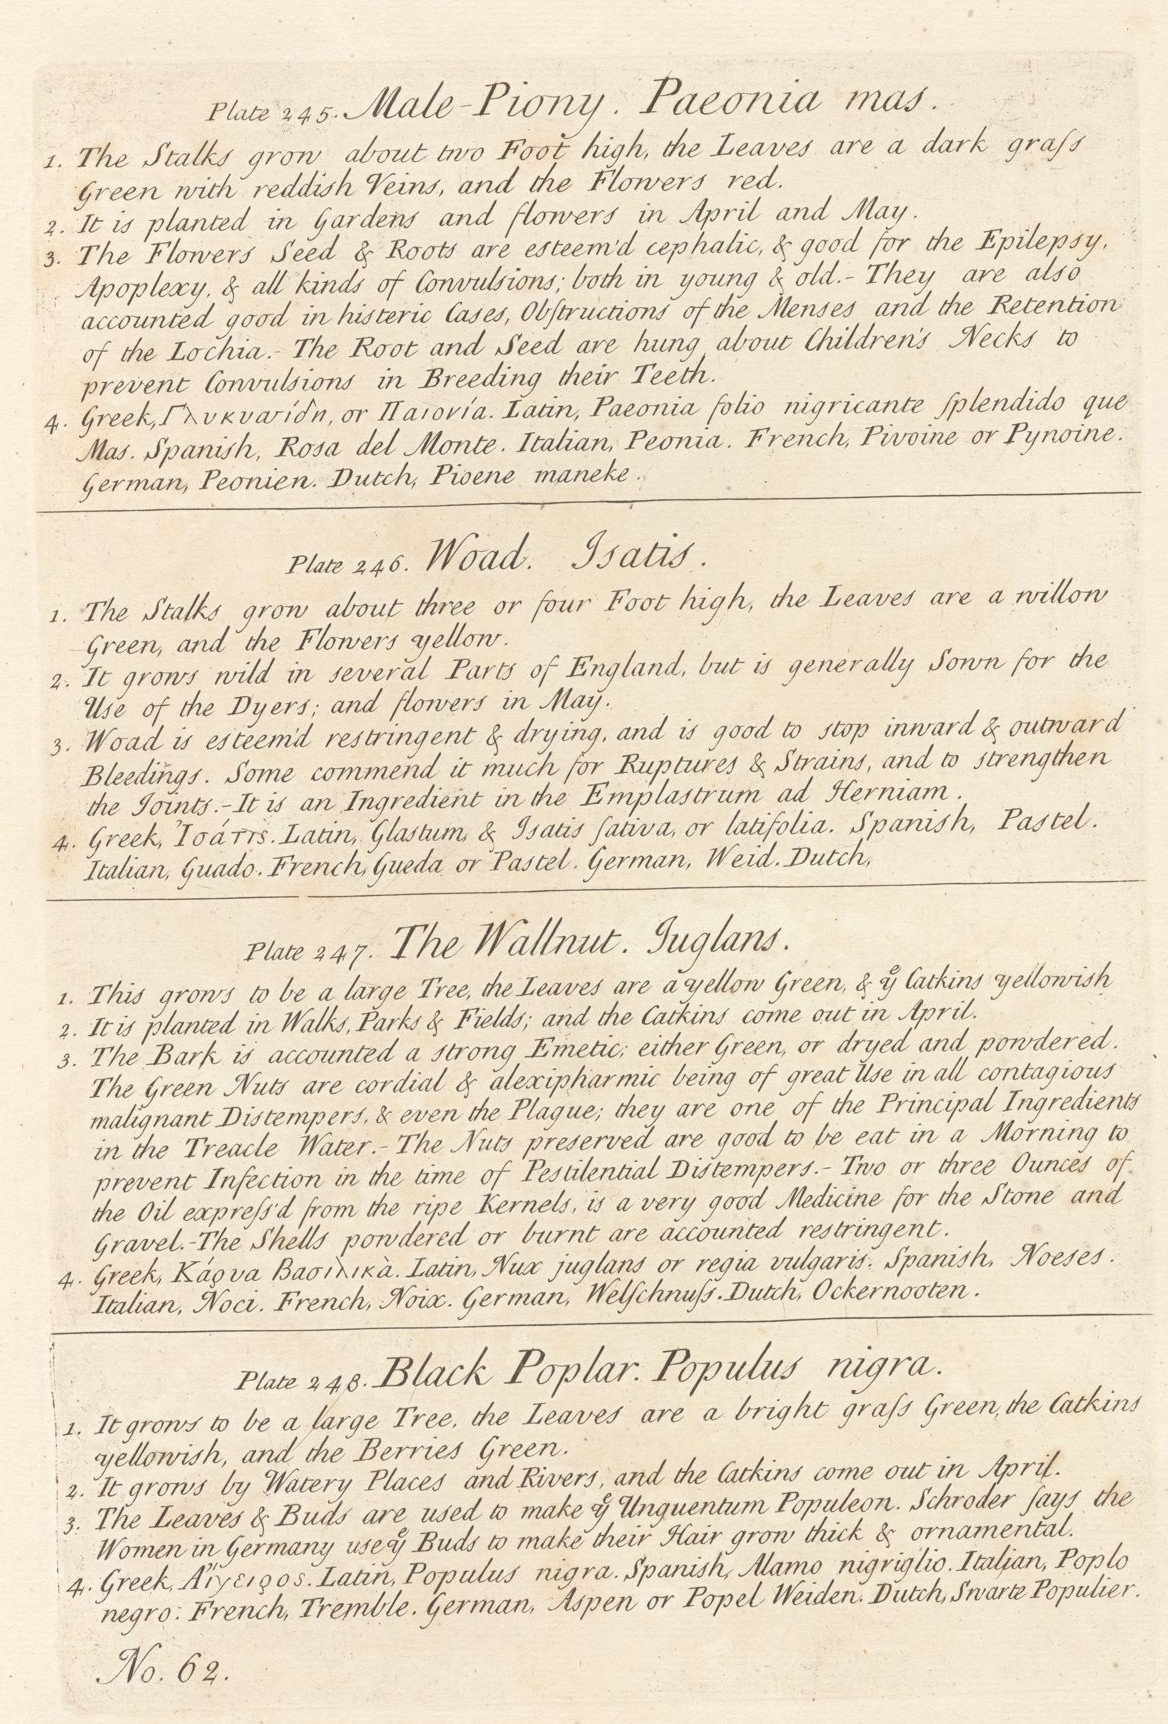 Plate 245. Male-Piony. Paeonia mas.
1. The Stalks grow about two Foot high, the Leaves are a dark graſs
Green with reddish Veins, and the Flowers red.
2. It is planted in Gardens and flowers in April and May.
3. The Flowers Seed & Roots are esteem'd cephalic, & good for the Epilepsy,
Apoplexy, & all kinds of Convulsions; both in young & old.- They are also
accounted good in histeric Cases, Obſtructions of the Menses and the Retention
of the Lochia.- The Root and Seed are hung about Children's Necks to
prevent Convulsions in Breeding their Teeth.
4. Greek, Γλυκυσίδη, or Παιονία. Latin, Paeonia folio nigricante ſplendido que
Mas. Spanish, Rosa del Monte. Italian, Peonia. French, Pivoine or Pynoine.
German, Peonien. Dutch, Pioene maneke.
Plate 246. Woad. Isatis.
1. The Stalks grow about three or four Foot high, the Leaves are a willow
Green, and the Flowers yellow.
2. It grows wild in several Parts of England, but is generally Sown for the
Use of the Dyers; and flowers in May.
3. Woad is esteem'd restringent & drying, and is good to stop inward & outward
Bleedings. Some commend it much for Ruptures & Strains, and to strengthen
the Joints.-It is an Ingredient in the Emplastrum ad Herniam.
4. Greek, Ἰσάτις. Latin, Glastum, & Isatis ſativa, or latifolia. Spanish, Pastel.
Italian, Guado. French, Gueda or Pastel. German, Weid. Dutch,
Plate 247. The Wallnut. Iuglans.
1. This grows to be a large Tree, the Leaves are a yellow Green, & yͤ Catkins yellowish
2. It is planted in Walks, Parks & Fields; and the Catkins come out in April.
3. The Bark is accounted a strong Emetic; either Green, or dryed and powdered.
The Green Nuts are cordial & alexipharmic being of great Use in all contagious
malignant Distempers, & even the Plague; they are one of the Principal Ingredients
in the Treacle Water.- The Nuts preserved are good to be eat in a Morning to
prevent Infection in the time of Pestilential Distempers.- Two or three Ounces of
the Oil expreſs'd from the ripe Kernels, is a very good Medicine for the Stone and
Gravel.-The Shells powdered or burnt are accounted restringent.
4. Greek, Κάρυα Βασιλικὰ. Latin, Nux juglans or regia vulgaris. Spanish, Noeses.
Italian, Noci. French, Noix. German, Welſchnuſs. Dutch, Ockernooten.
Plate 248. Black Poplar. Populus nigra.
1. It grows to be a large Tree, the Leaves are a bright graſs Green, the Catkins
yellowish, and the Berries Green.
2. It grows by Watery Places and Rivers, and the Catkins come out in April.
3. The Leaves & Buds are used to make yͤ Unguentum Populeon. Schroder ſays the
Women in Germany use yͤ Buds to make their Hair grow thick & ornamental.
4. Greek, Ἀίγειρος. Latin, Populus nigra. Spanish, Alamo nigriglio. Italian, Poplo
negro. French, Tremble. German, Aspen or Popel Weiden. Dutch, Swarte Populier.
No. 62.